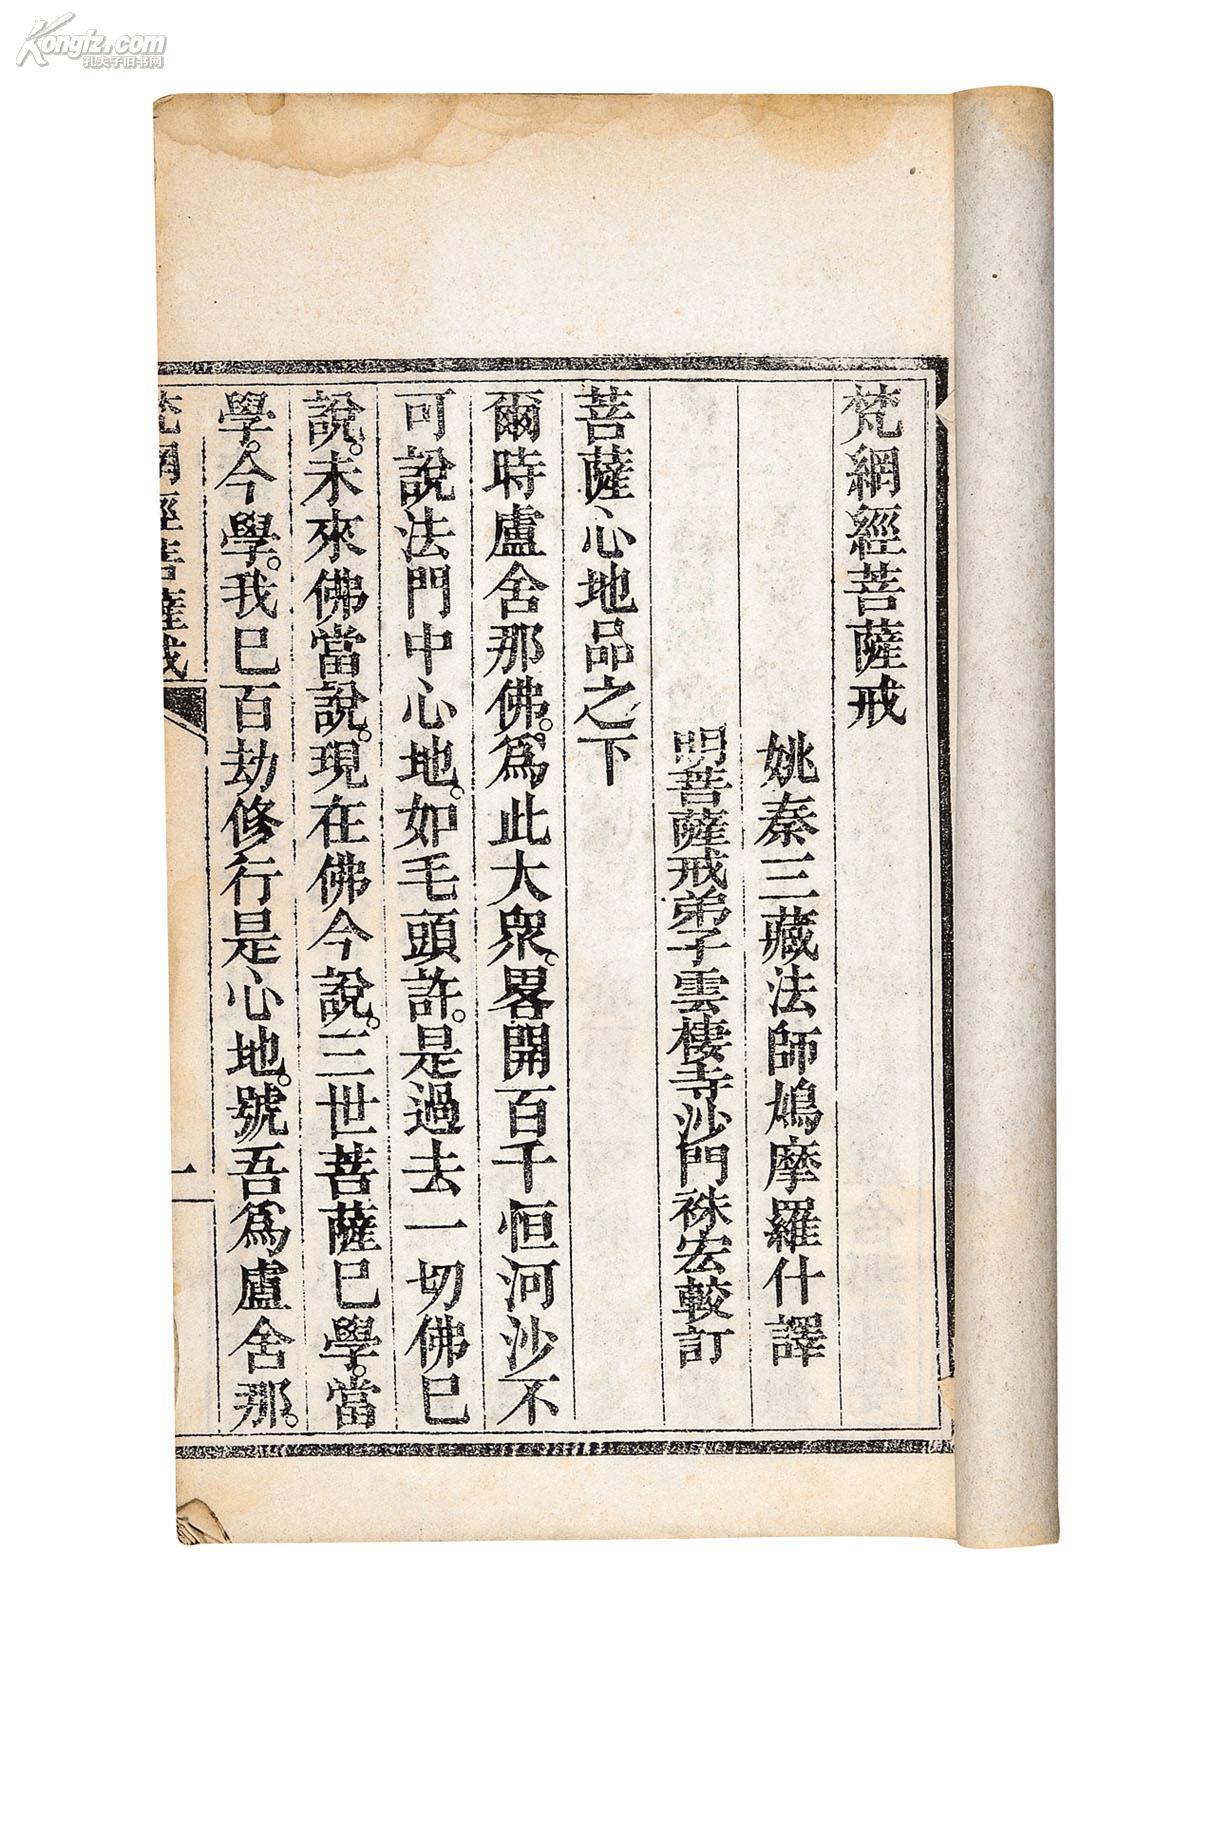 Kongfz.com
孔夫子旧书网
梵網經菩薩戒
姚秦三藏法師鳩摩羅什譯
明菩薩戒弟子雲棲寺沙門袾宏較訂
菩薩心地品之下
爾時盧舍那佛。爲此大衆。畧開百千恒河沙不
可說法門中心地。如毛頭許。是過去一切佛巳
說。未來佛當說。現在佛今說。三世菩薩巳學。當
學。今學。我巳百劫修行是心地。號吾爲盧舍那。
梵網經菩薩戒
一